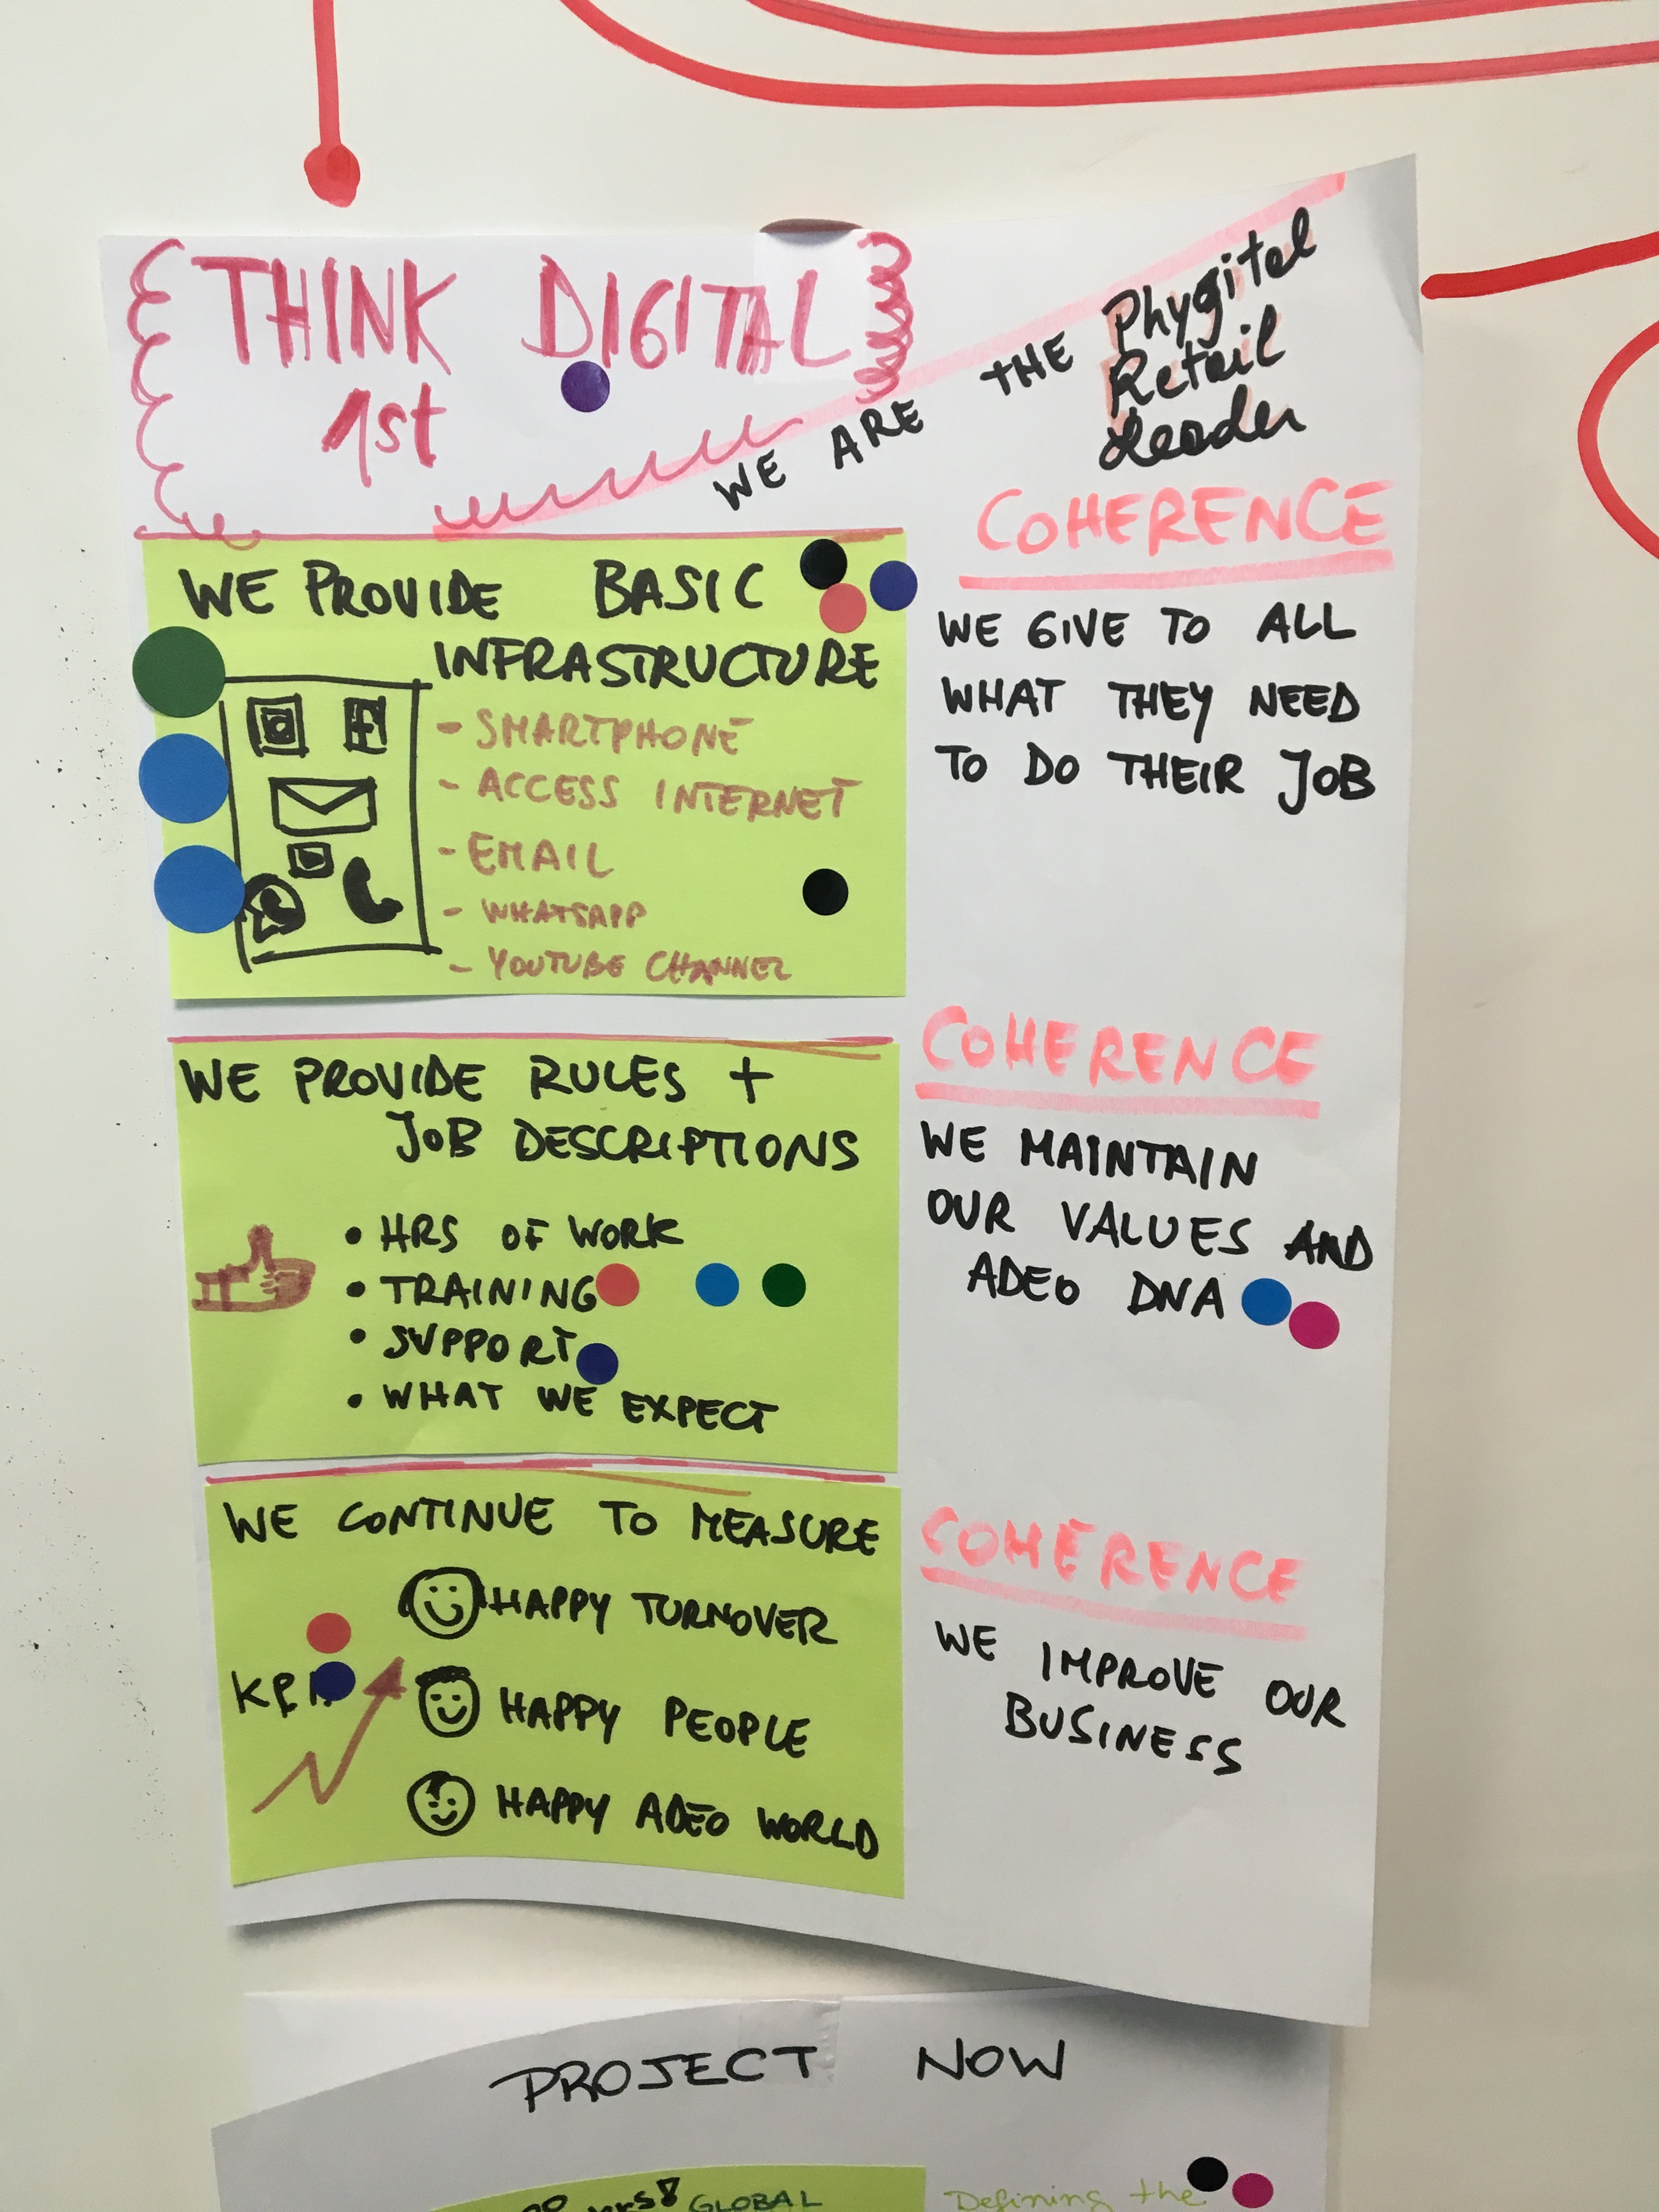 THINK DIGITAL
1st
WE ARE THE Phygital
Retail
Leader
WE PROVIDE BASIC
INFRASTRUCTURE
- SMARTPHONE
- ACCESS INTERNET
- EMAIL
- WHATSAPP
- YOUTUBE CHANNEL
COHERENCE
WE GIVE TO ALL
WHAT THEY NEED
TO DO THEIR JOB
WE PROVIDE RULES +
JOB DESCRIPTIONS
• HRS OF WORK
• TRAINING
• SUPPORT
• WHAT WE EXPECT
COHERENCE
WE MAINTAIN
OUR VALUES AND
ADEO DNA
WE CONTINUE TO MEASURE
HAPPY TURNOVER
KPI
HAPPY PEOPLE
HAPPY ADEO WORLD
COHERENCE
WE IMPROVE OUR
BUSINESS
PROJECT NOW
GLOBAL
Defining the